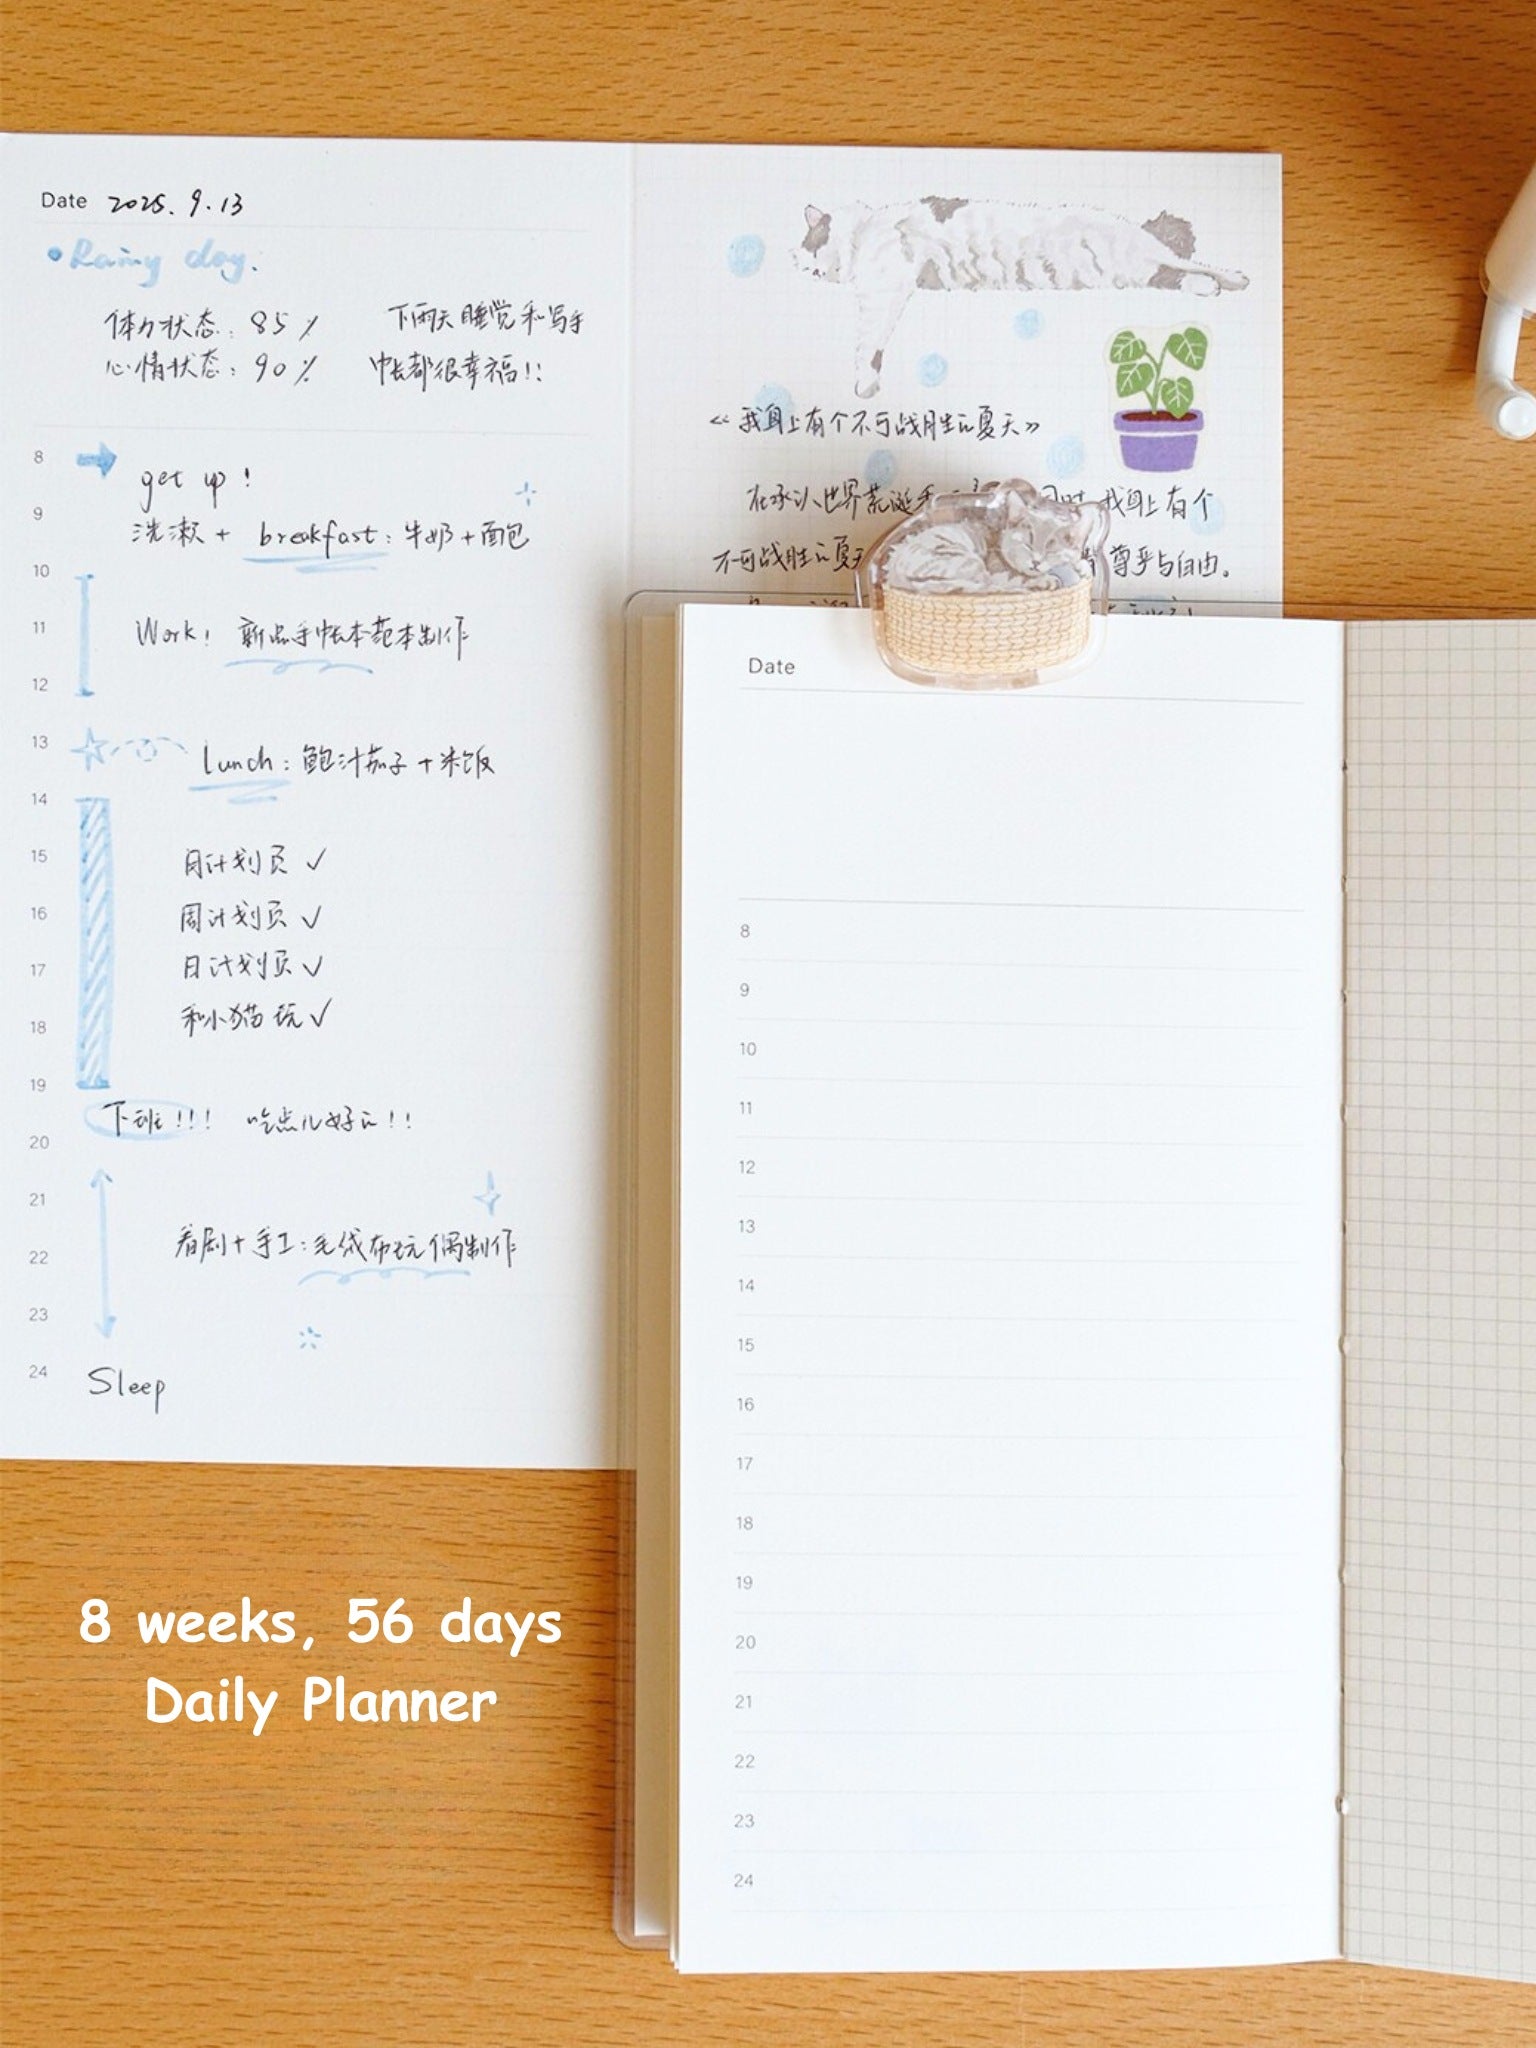 Date 2025. 9. 13
Rainy day.
体力状态: 85%
心情状态: 90%
下雨天睡觉和写手
帐都很幸福!!
8
get up!
9
洗漱 + breakfast: 牛奶+面包
10
11 Work! 新品手帐本范本制作
12
13 lunch: 鲍汁茄子+米饭
14
15 月计划页 ✓
16 周计划页 ✓
17 日计划页 ✓
18 和小猫玩 ✓
19
下班!!! 吃点儿好的!!
20
21
22 看剧+手工:毛绒布玩偶制作
23
24 Sleep
《我身上有个不可战胜的夏天》
在承认世界荒诞 同时 我身上有个
不可战胜的夏天 尊严与自由。
Date
8
9
10
11
12
13
14
15
16
17
18
19
20
21
22
23
24
8 weeks, 56 days
Daily Planner